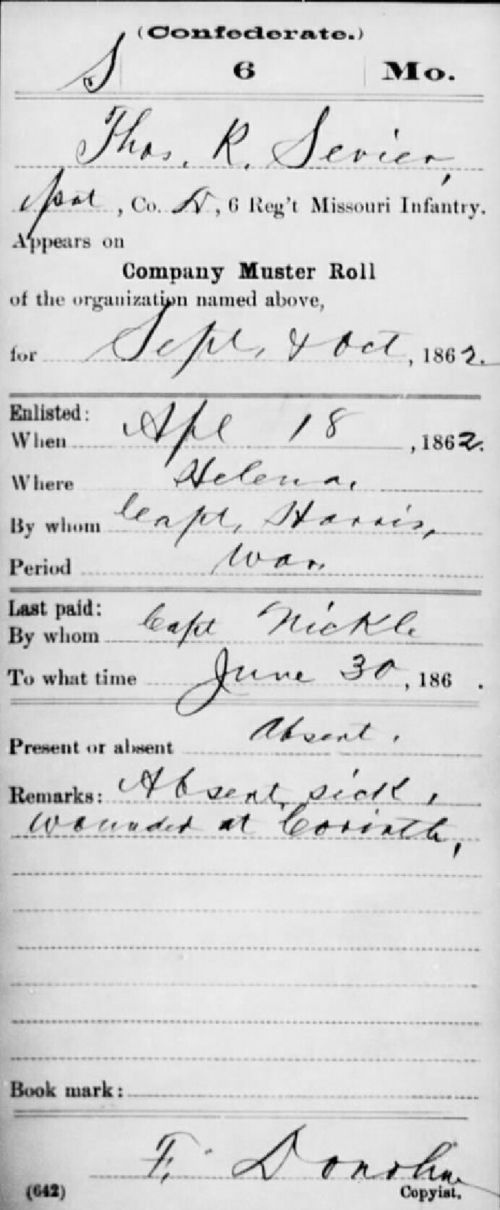 (Confederate.)
S 6 Mo.
Thos. R. Sevier,
Pvt, Co. D, 6 Reg't Missouri Infantry.
Appears on
Company Muster Roll
of the organization named above,
for Sept. & Oct, 1862.
Enlisted:
When Apl 18, 1862.
Where Helena.
By whom Capt. Harris,
Period War.
Last paid:
By whom Capt Nickle
To what time June 30, 186 .
Present or absent Absent.
Remarks: Absent sick,
wounded at Corinth,
Book mark:
F. Donohue
(642) Copyist.